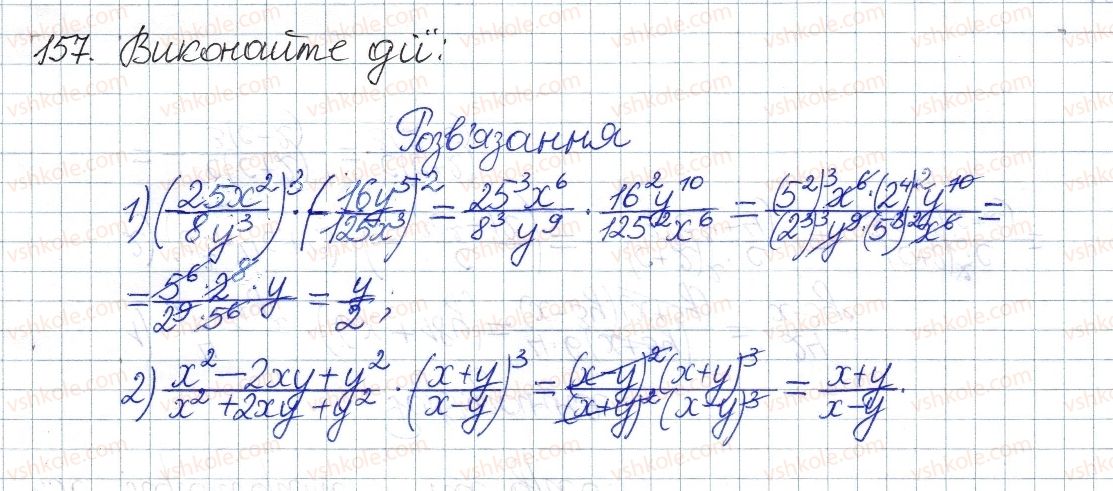 157. Виконайте дії:
Розв'язання
1) (25x²/8y³)³ · (-16y⁵/125x³)² = 25³x⁶/8³y⁹ · 16²y¹⁰/125²x⁶ = (5²)³x⁶·(2⁴)²y¹⁰/(2³)³y⁹·(5³)²x⁶ =
= 5⁶·2⁸·y/2⁹·5⁶ = y/2;
2) x²-2xy+y²/x²+2xy+y² · (x+y/x-y)³ = (x-y)²(x+y)³/(x+y)²(x-y)³ = x+y/x-y.